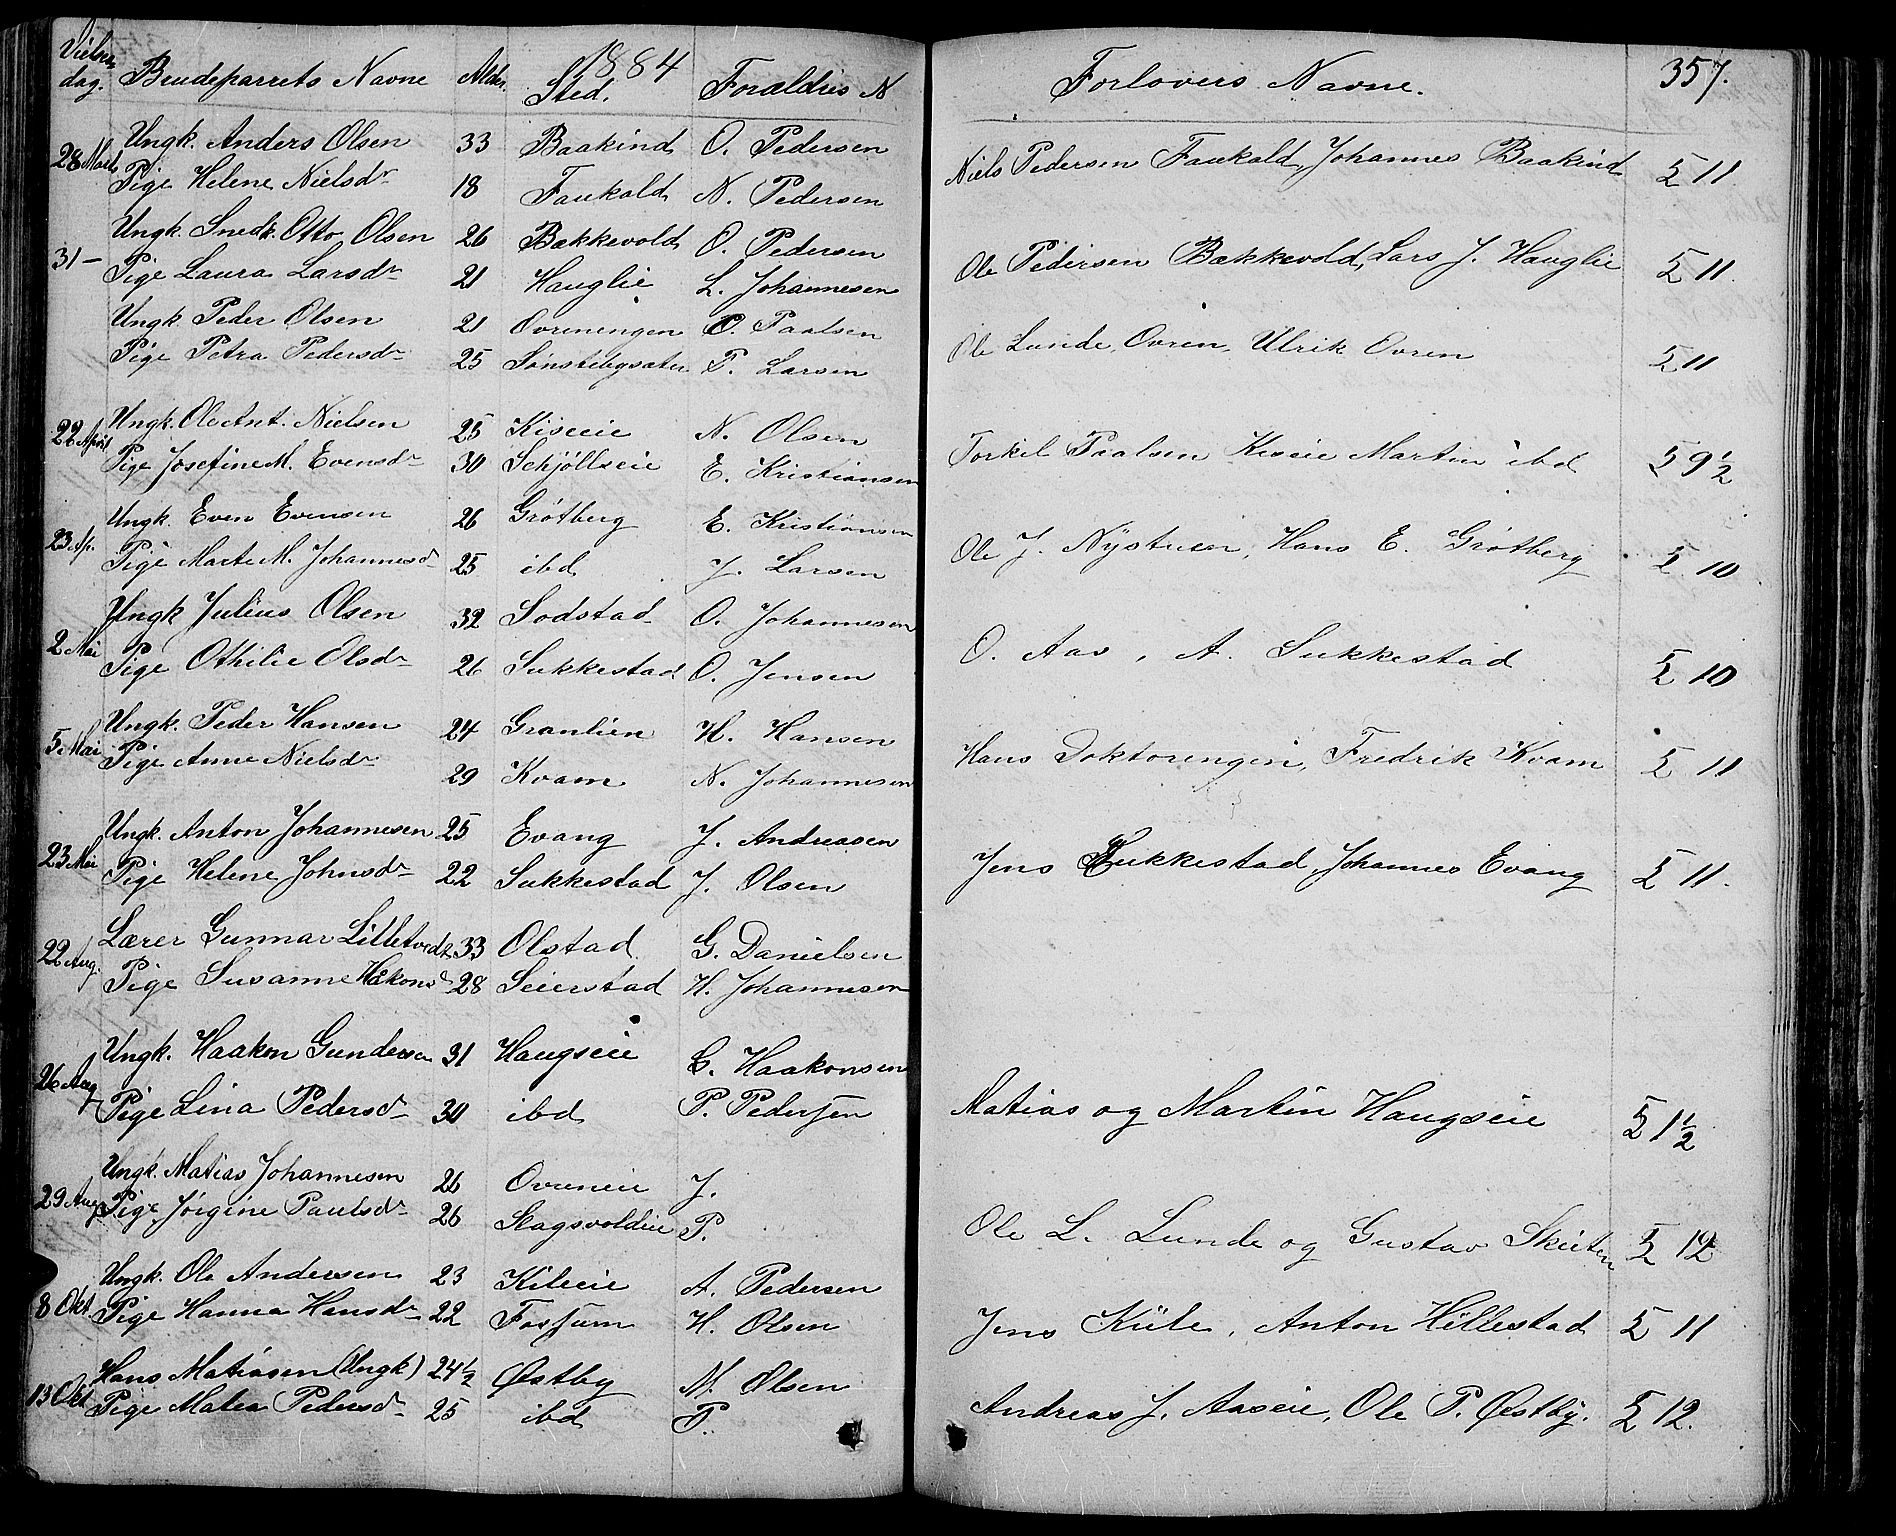 1884
Vielses dag. Brudeparrets Navne Alder. Sted. Forældres N Forlovers Navne. 357.
28 Marts Ungk. Anders Olsen 33 Baakind O. Pedersen Niels Pedersen Faukald, Johannes Baakind 5 11
Pige Helene Nielsdr 18 Faukald N. Pedersen
31 — Ungk. Snedk. Otto Olsen 26 Bækkevold O. Pedersen Ole Pedersen Bækkevold, Lars J. Hauglie 5 11.
Pige Laura Larsdr 21 Hauglie L. Johannesen
Ungk. Peder Olsen 21 Ovrenengen O. Paalsen Ole Lunde, Ovren, Ulrik Ovren 5 11
Pige Petra Pedersdr 25 Sønstebysæter P. Larsen
22 April Ungk. Ole Ant. Nielsen 25 Kiseeie N. Olsen Torkil Paalsen Kiseie Martin ibd 5 9 1/2
Pige Josefine M. Evensdr 30 Schjøllseie E. Kristiansen
23 Ap. Ungk. Even Evensen 26 Grøtberg E. Kristiansen Ole J. Nystuen, Hans E. Grøtberg 5. 10
Pige Marte M. Johannesd 25 ibd J. Larsen
2 Mai Ungk Julius Olsen 32 Sodstad O. Johannesen O. Aas, A. Sukkestad 5 10
Pige Othilie Olsdr 26 Sukkestad O. Jensen
5 Mai Ungk. Peder Hansen 24 Granlien H. Hansen Hans Doktorengen, Fredrik Kvam 5 11
Pige Anne Nielsdr 29 Kvam N. Johannesen
23 Mai Ungk. Anton Johannesen 25 Evang J. Andreasen Jens Sukkestad, Johannes Evang 5 11.
Pige Helene Johnsdr 22 Sukkestad J. Olsen
22 Aug. Lærer Gunnar Lilletvedt 33 Olstad G. Danielsen
Pige Susanne Håkonsd 28 Seierstad H. Johannesen
26 Aug Ungk. Haakon Gundersen 31 Haugseie G. Haakonsen Matias og Martin Haugseie 5 1 1/2
Pige Lina Pedersdr 30 ibd P. Pedersen
29 Aug Ungk. Matias Johannesen 26 Ovreneie J. Ole L. Lunde og Gustav Skuten 5 12
Pige Jørgine Paulsdr 26 Slagsvoldeie P.
8 Okt Ungk. Ole Andersen 23 Kileeie A. Pedersen Jens Kiile, Anton Hillestad 5 11
Pige Hanna Hansdr 22 Fossum H. Olsen
13 Okt Hans Matiasen (Ungk) 24 1/2 Østby M. Olsen Andreas J. Aaseie, Ole P. Østby. 5 12.
Pige Malea Pedersdr 25 ibd P.